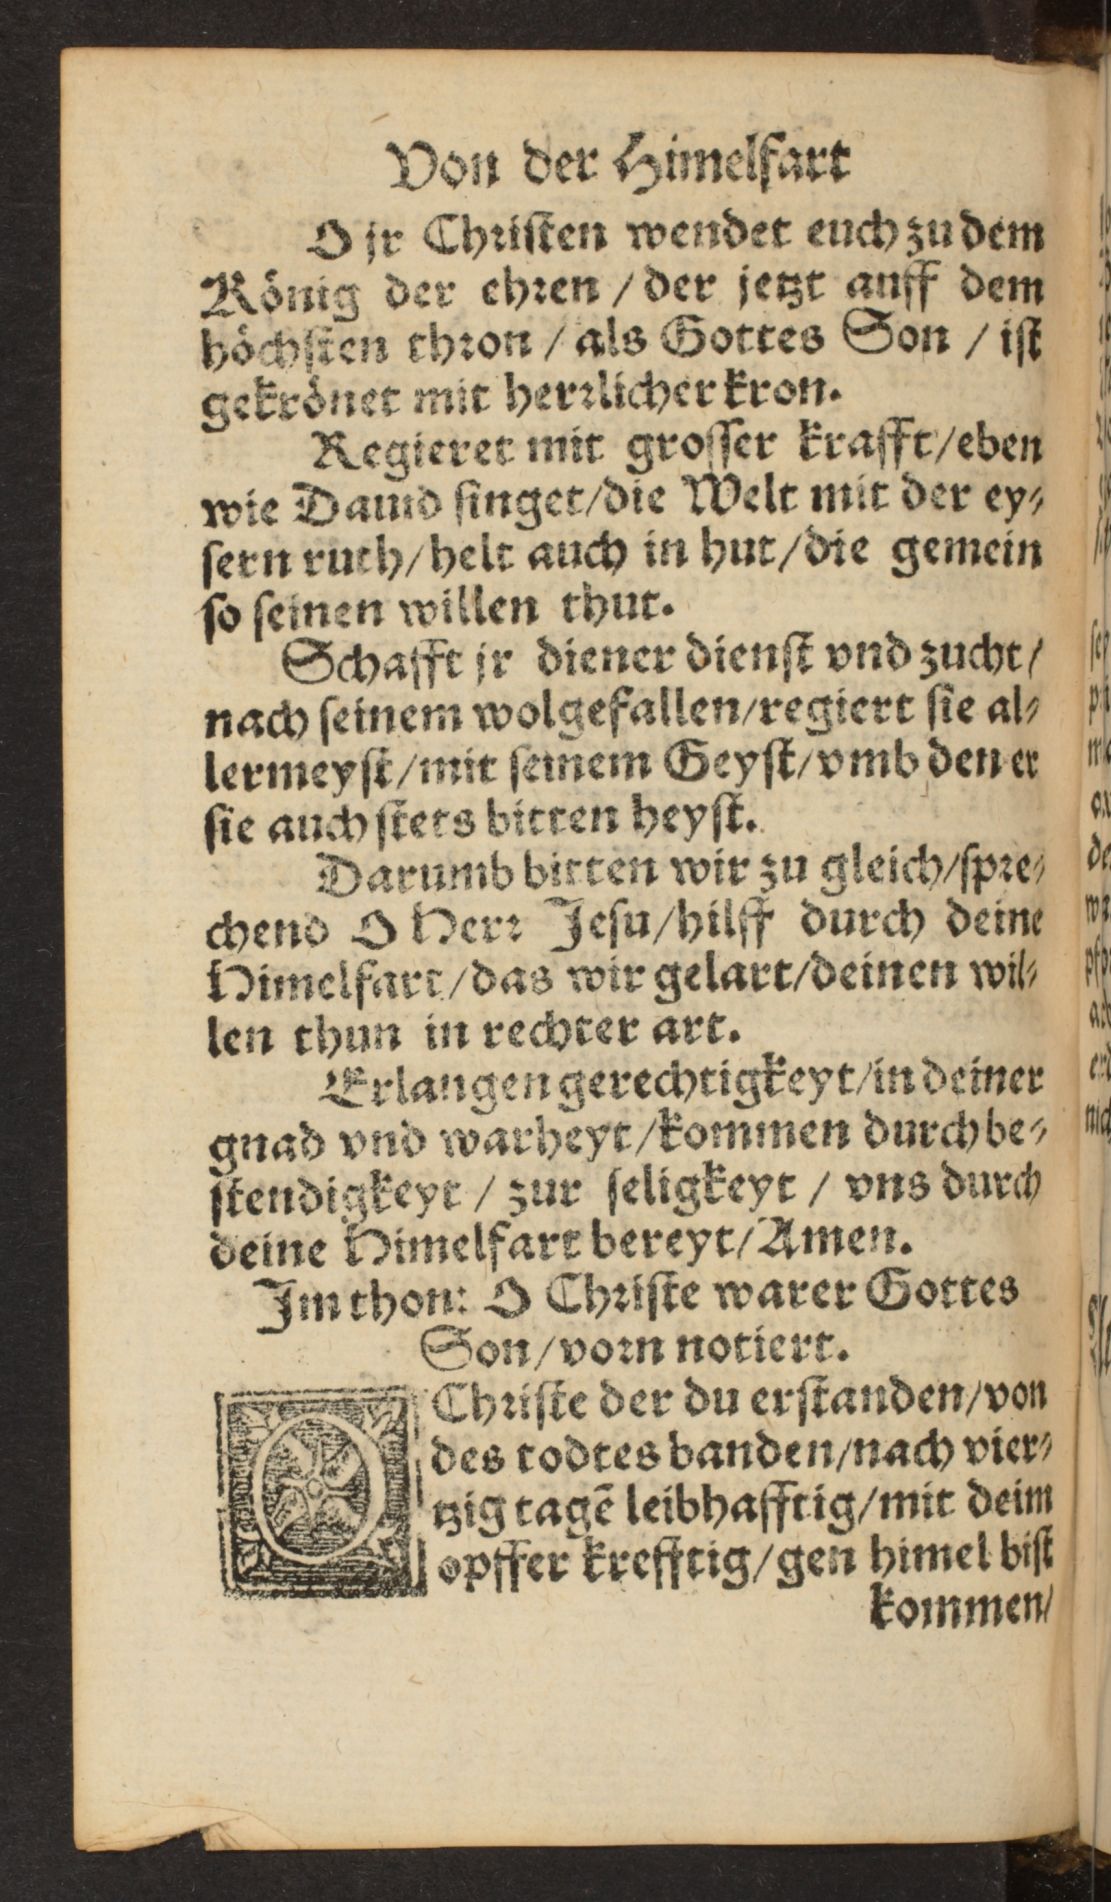 Von der Himelfart
O jr Christen wendet euch zu dem
König der ehren / der jetzt auff dem
höchsten thron / als Gottes Son / ist
gekrönet mit herrlicher kron.
Regieret mit grosser krafft/eben
wie Dauid singet/die Welt mit der ey⸗
sern ruth/helt auch in hut/die gemein
so seinen willen thut.
Schafft jr diener dienst vnd zucht/
nach seinem wolgefallen/regiert sie al⸗
lermeyst/mit seinem Geyst/vmb den er
sie auch stets bitten heyst.
Darumb bitten wir zu gleich/spre⸗
chend O Herr Jesu/hilff durch deine
Himelfart/das wir gelart/deinen wil⸗
len thun in rechter art.
Erlangen gerechtigkeyt/in deiner
gnad vnd warheyt/kommen durch be⸗
stendigkeyt / zur seligkeyt / vns durch
deine Himelfart bereyt/Amen.
Im thon: O Christe warer Gottes
Son/vorn notiert.
O Christe der du erstanden/von
des todtes banden/nach vier⸗
tzig tagē leibhafftig/mit deim
opffer krefftig/gen himel bist
kommen/